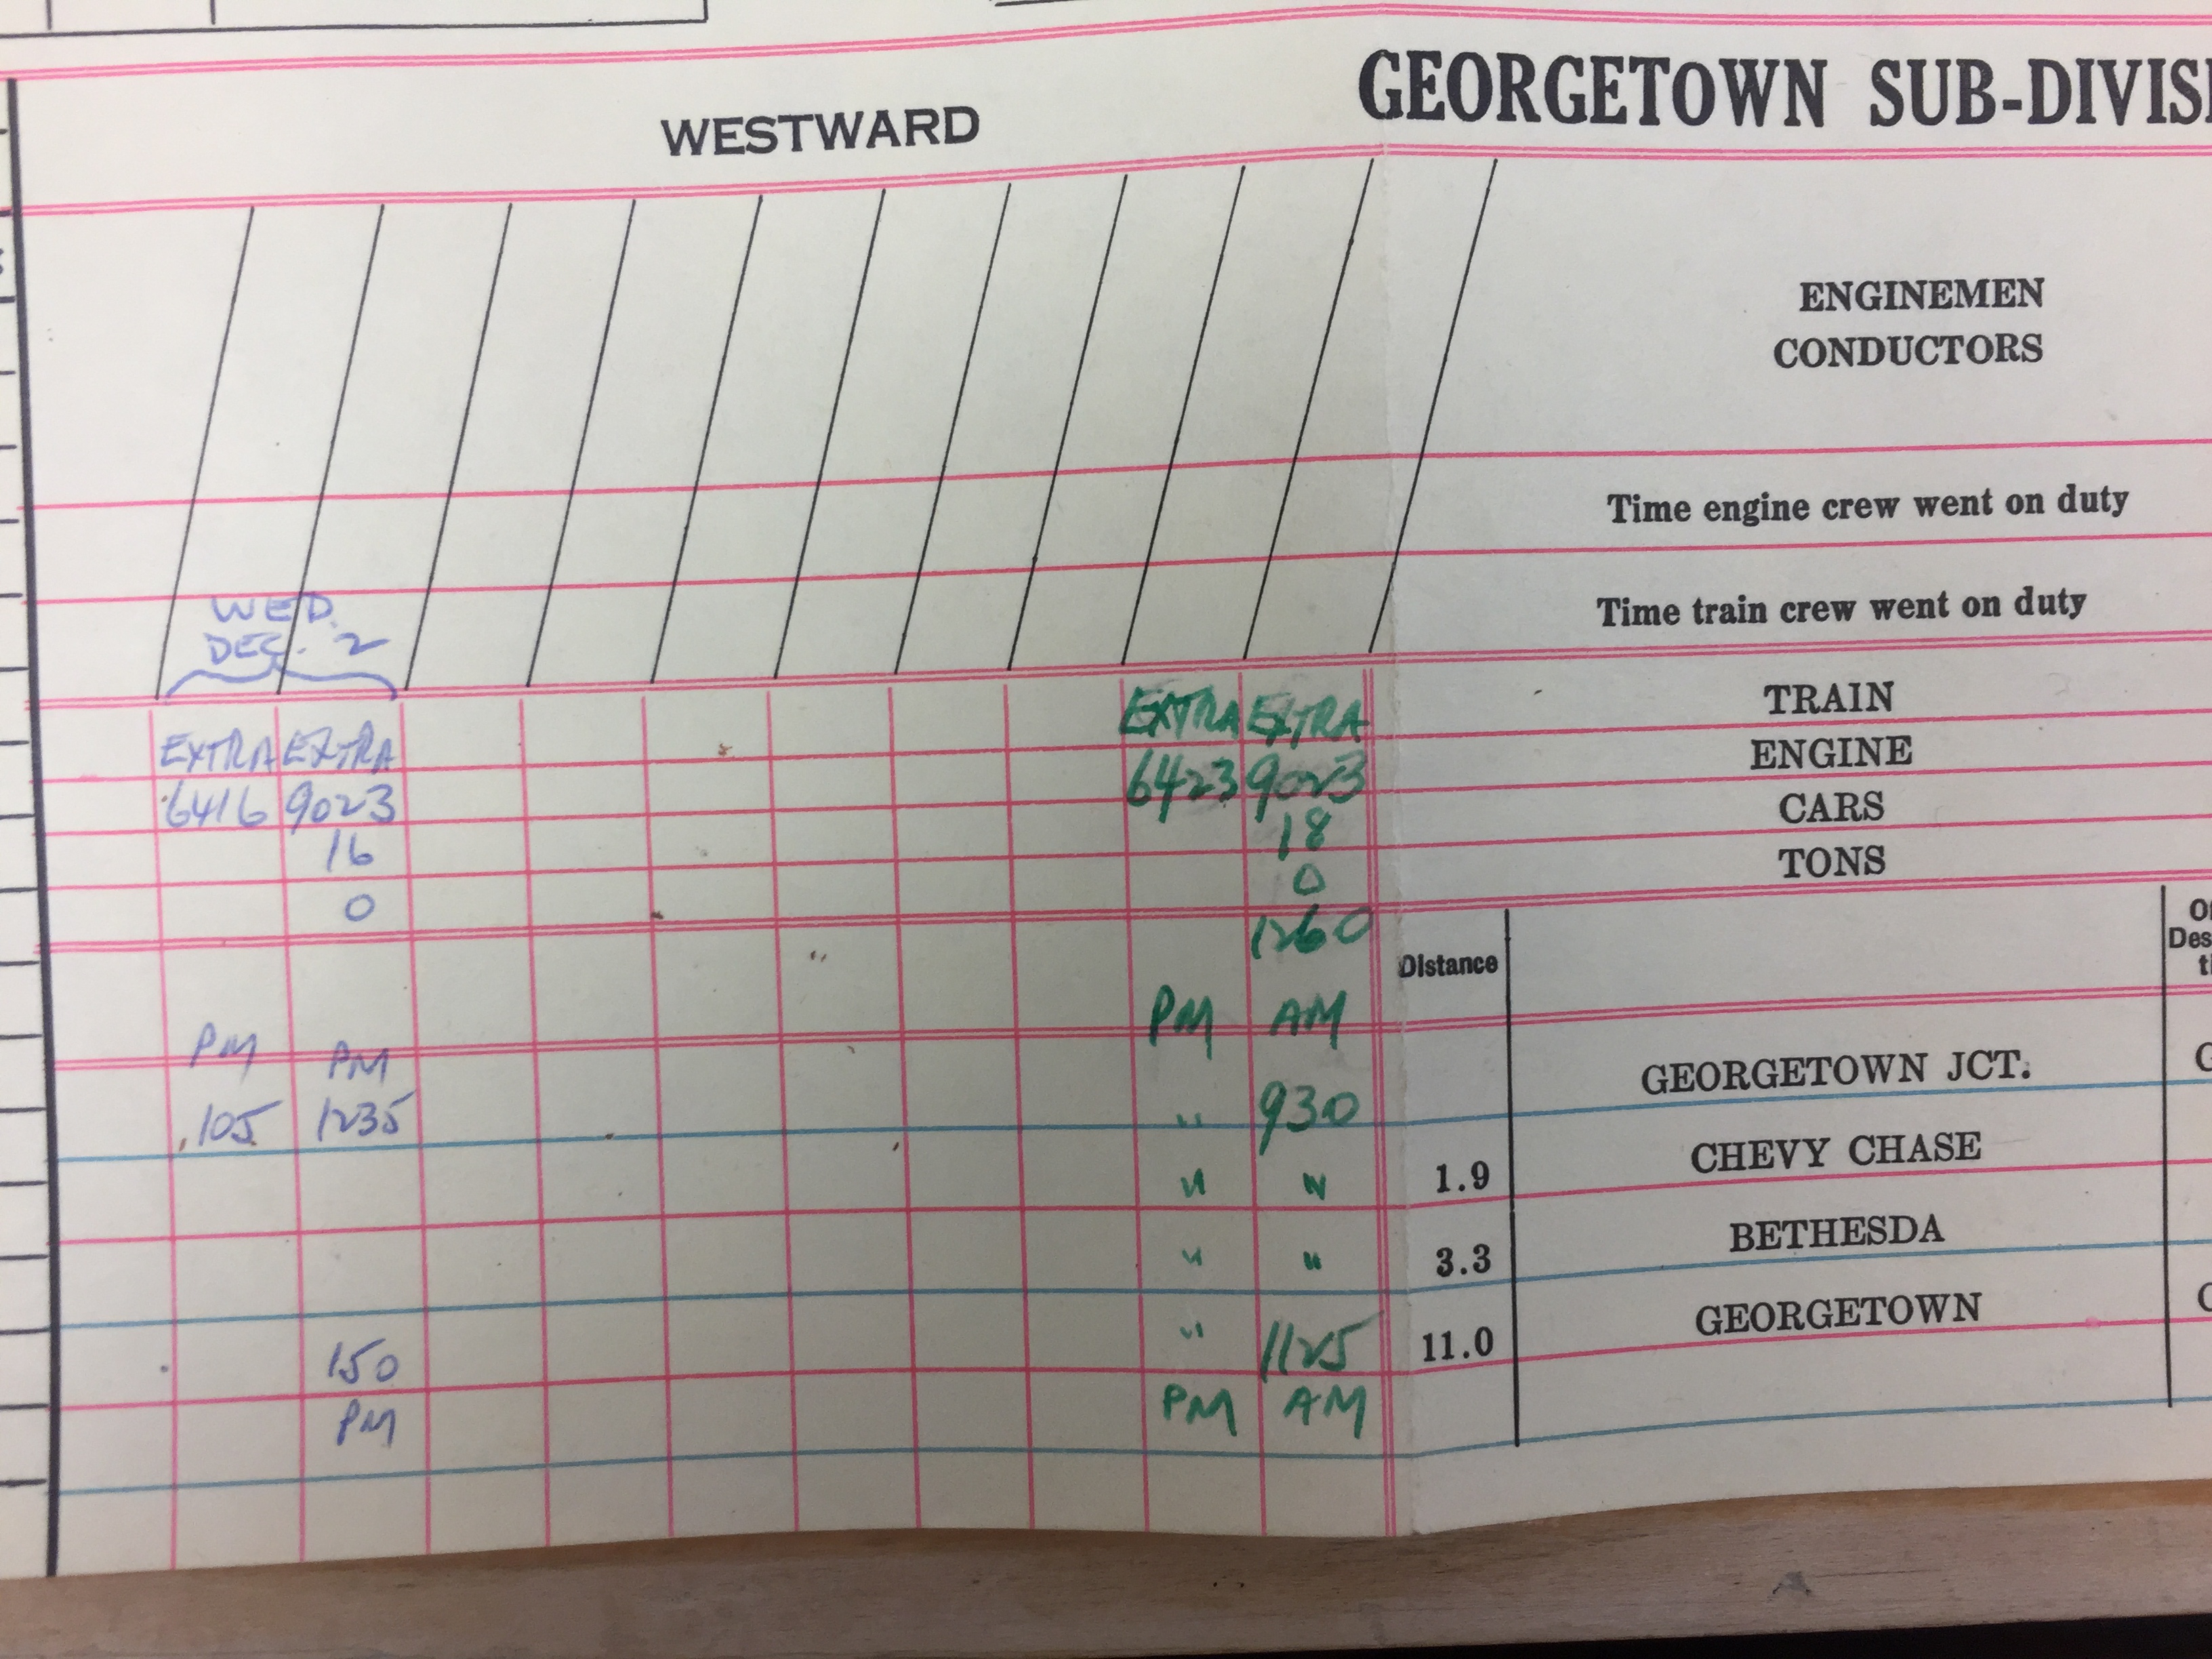 GEORGETOWN SUB-DIVISI
WESTWARD
ENGINEMEN
CONDUCTORS
Time engine crew went on duty
WED.
DEC. 2
Time train crew went on duty
EXTRA EXTRA EXTRA EXTRA TRAIN
6416 9023 6423 9023 ENGINE
16 18 CARS
0 0 TONS
1260
Distance
PM PM PM AM
105 1235 " 930 GEORGETOWN JCT.
" " 1.9 CHEVY CHASE
" " 3.3 BETHESDA
150 " 1125 11.0 GEORGETOWN
PM PM AM